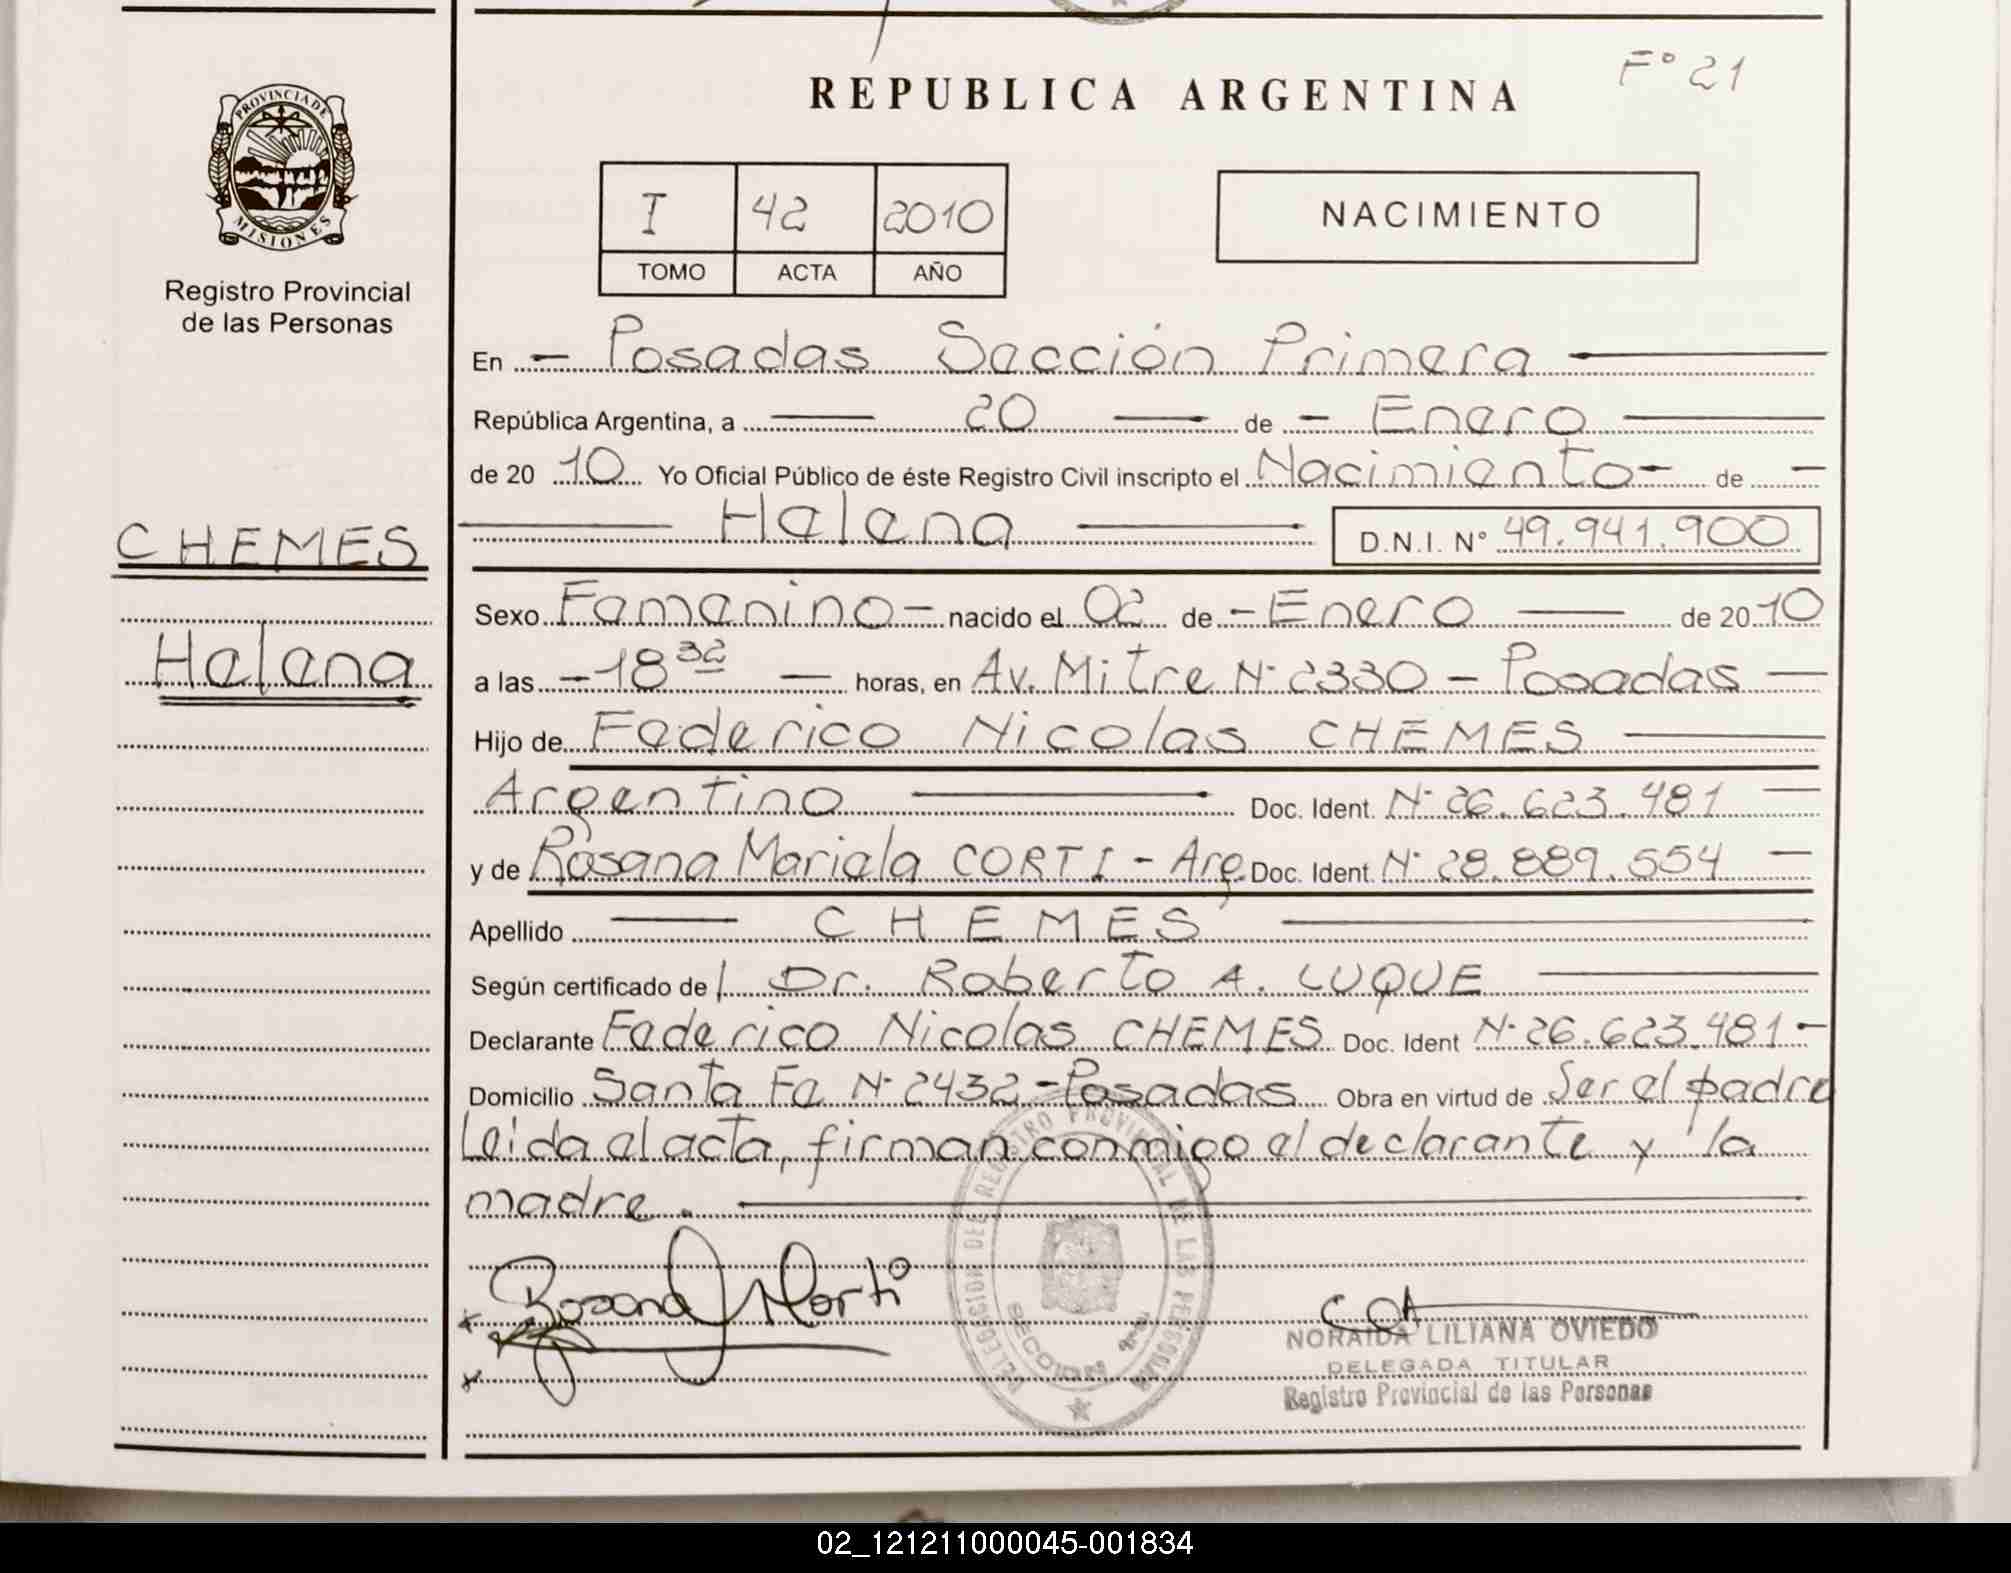 Fº 21
PROVINCIA DE
MISIONES
Registro Provincial
de las Personas
REPUBLICA ARGENTINA
I 42 2010
TOMO ACTA AÑO
NACIMIENTO
En - Posadas Sección Primera
República Argentina, a 20 de - Enero
de 20 10 Yo Oficial Público de éste Registro Civil inscripto el Nacimiento - de -
CHEMES
Helena D.N.I. Nº 49.941.900
Helena
Sexo Femenino - nacido el 02 de - Enero de 20 10
a las - 18 32 horas, en Av. Mitre Nº 2330 - Posadas
Hijo de Federico Nicolas CHEMES
Argentino Doc. Ident. Nº 26.623.481
y de Rosana Mariela CORTI - Arg. Doc. Ident. Nº 28.889.554
Apellido CHEMES
Según certificado de Dr. Roberto A. LUQUE
Declarante Federico Nicolas CHEMES Doc. Ident Nº 26.623.481 -
Domicilio Santa Fe Nº 2432 - Posadas Obra en virtud de Ser el padre
Leida el acta, firman conmigo el declarante y la
madre.
DELEGACION DEL REGISTRO PROVINCIAL DE LAS PERSONAS
SECCION
Rosana Corti
NORAIDA LILIANA OVIEDO
DELEGADA TITULAR
Registro Provincial de las Personas
02_121211000045-001834